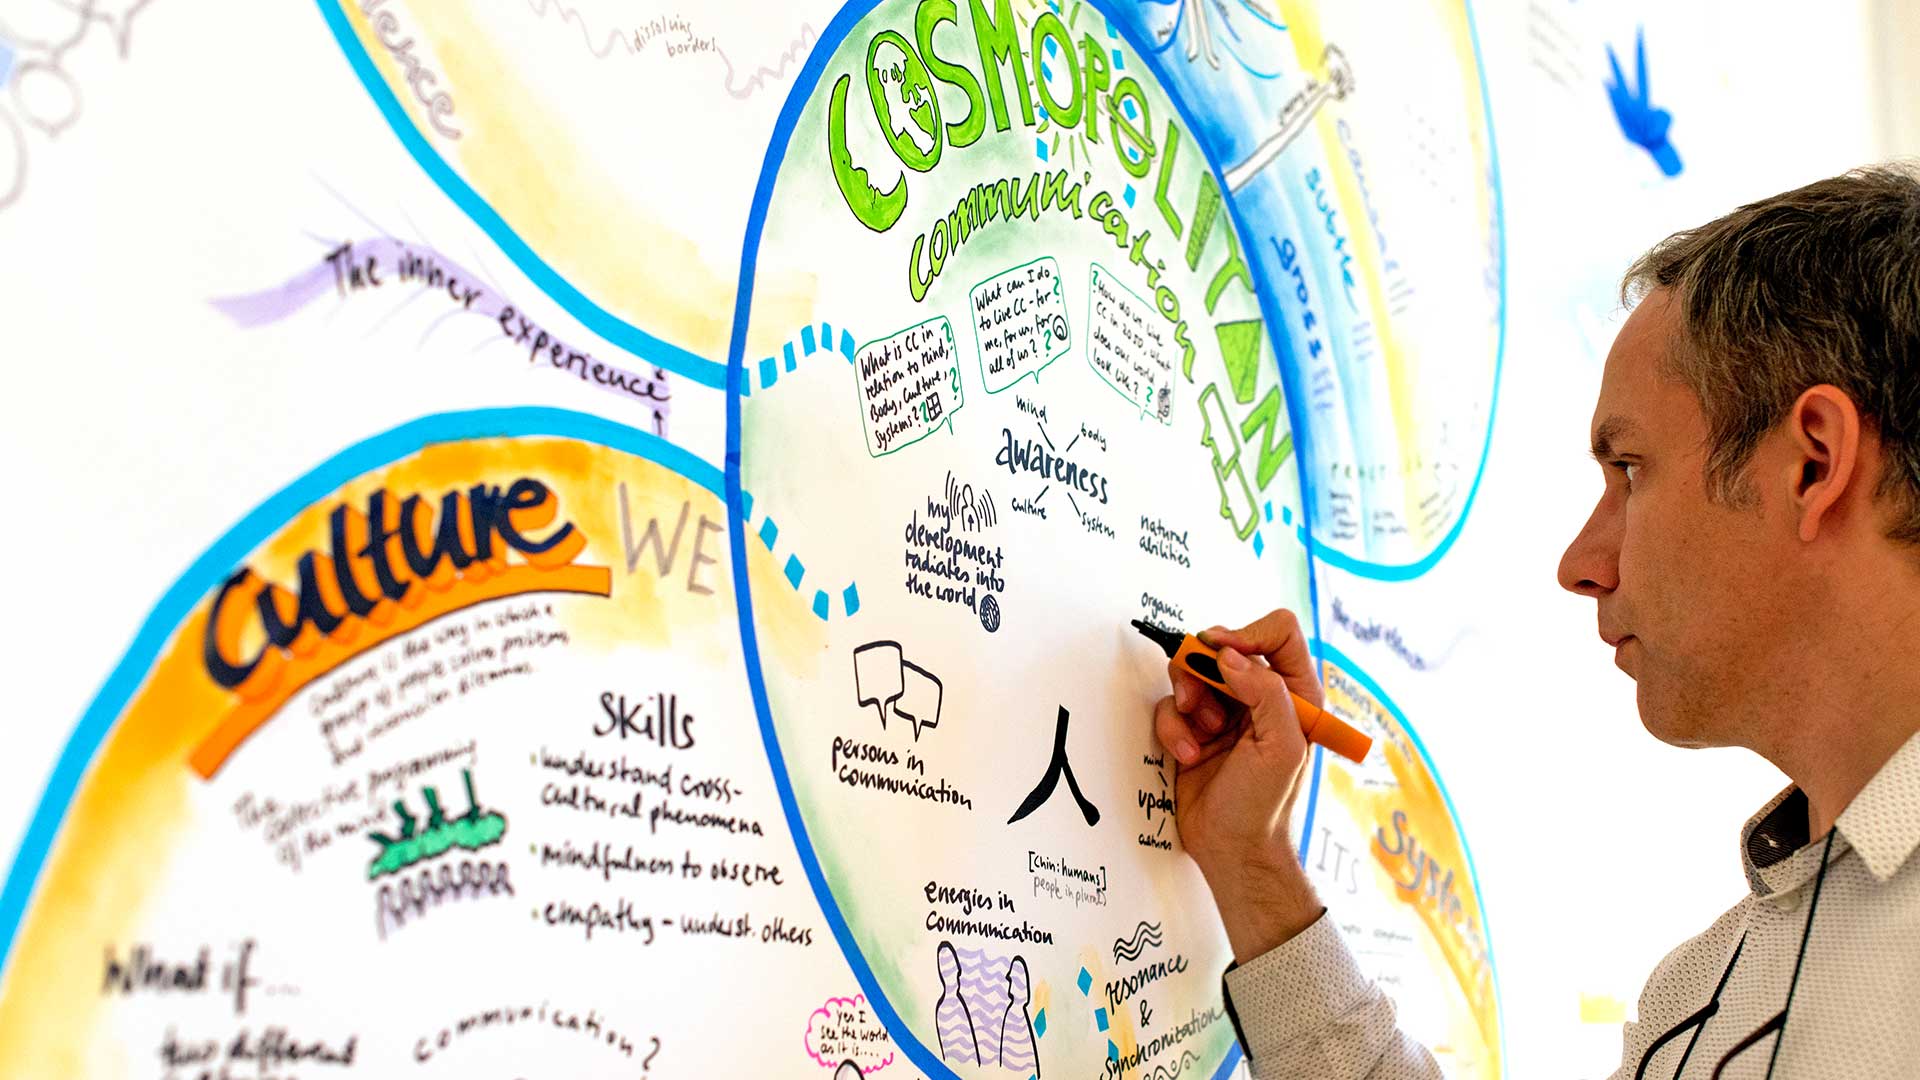 dissolving
borders
COSMOPOLITAN
communication
causal
subtle
gross
The inner experience
What is CC in
relation to Mind,
Body, Culture,
Systems?
What can I do
to live CC - for
me, for us, for
all of us?
How do we live
CC in 2050, what
does our world
look like?
mind
body
awareness
culture
system
my
development
radiates into
the world
natural
abilities
organic
Culture
WE
Culture is the way in which a
group of people solves problems
and reconciles dilemmas.
The
collective programming
of the mind
Skills
understand cross-
cultural phenomena
mindfulness to observe
empathy - underst. others
persons in
communication
人
[chin: humans]
people in plural
mind
cultures
ITS
energies in
communication
resonance
&
synchronization
yes I
see the world
as it is....
What if...
two different
communication?